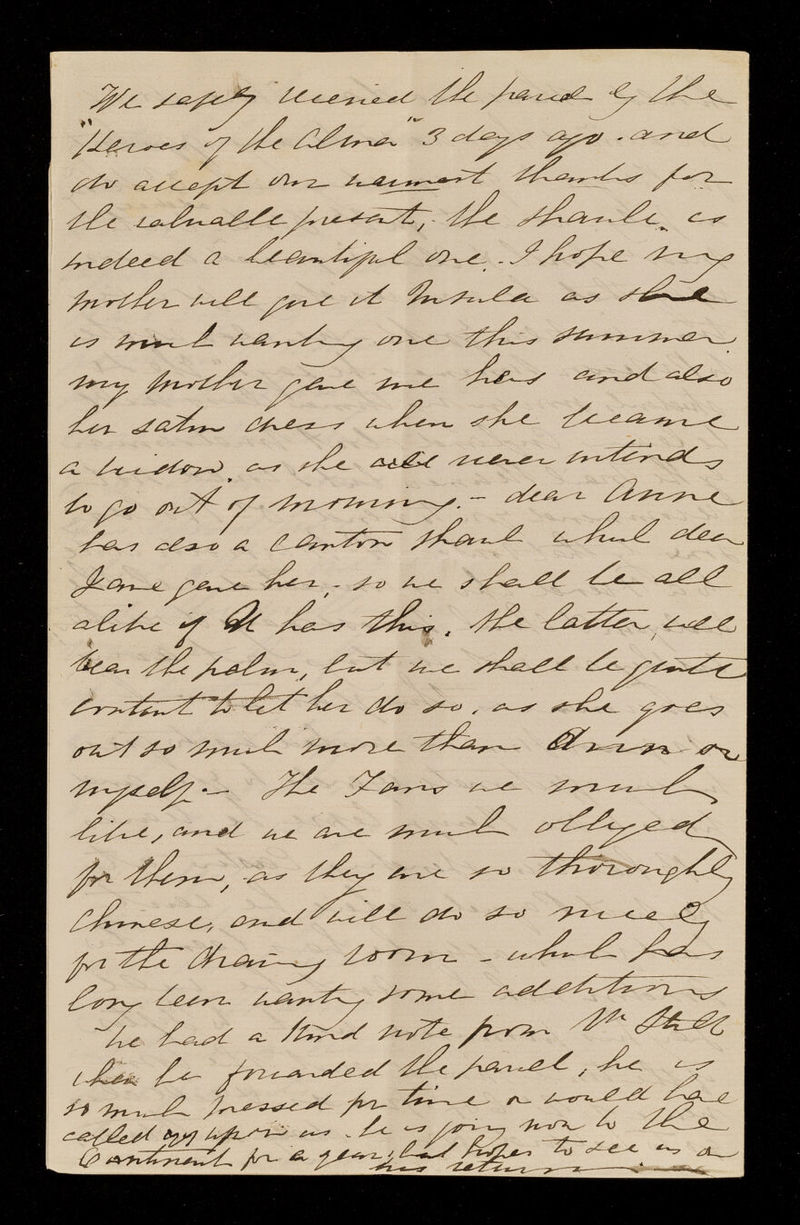 We safely received the parcel by the
"Heroes of the Alma" 3 days ago. and
do accept our warmest thanks for
the valuable present, the shawl is
indeed a beautiful one. I hope my
mother will give it Ursula as she
is much wanting one this summer.
my mother gave me hers and also
her satin dress when she became
a widow. as she never intends
to go out of mourning. - dear Anne
has also a Canton shawl which dear
Jane gave her, so we shall be all
alike if U has this. the latter will
bear the palm, but we shall be quite
content to let her do so. as she goes
out so much more than Ann or
myself. - The Fans we much
like, and we are much obliged
for them, as they are so thoroughly
Chinese, and will do so nicely
for the drawing room - which has
long been wanting some additions
We had a kind note from Mr
when he forwarded the parcel, he is
so much pressed for time or would have
called upon us. he is going now to the
Continent for a year, but hopes to see us on
his return.